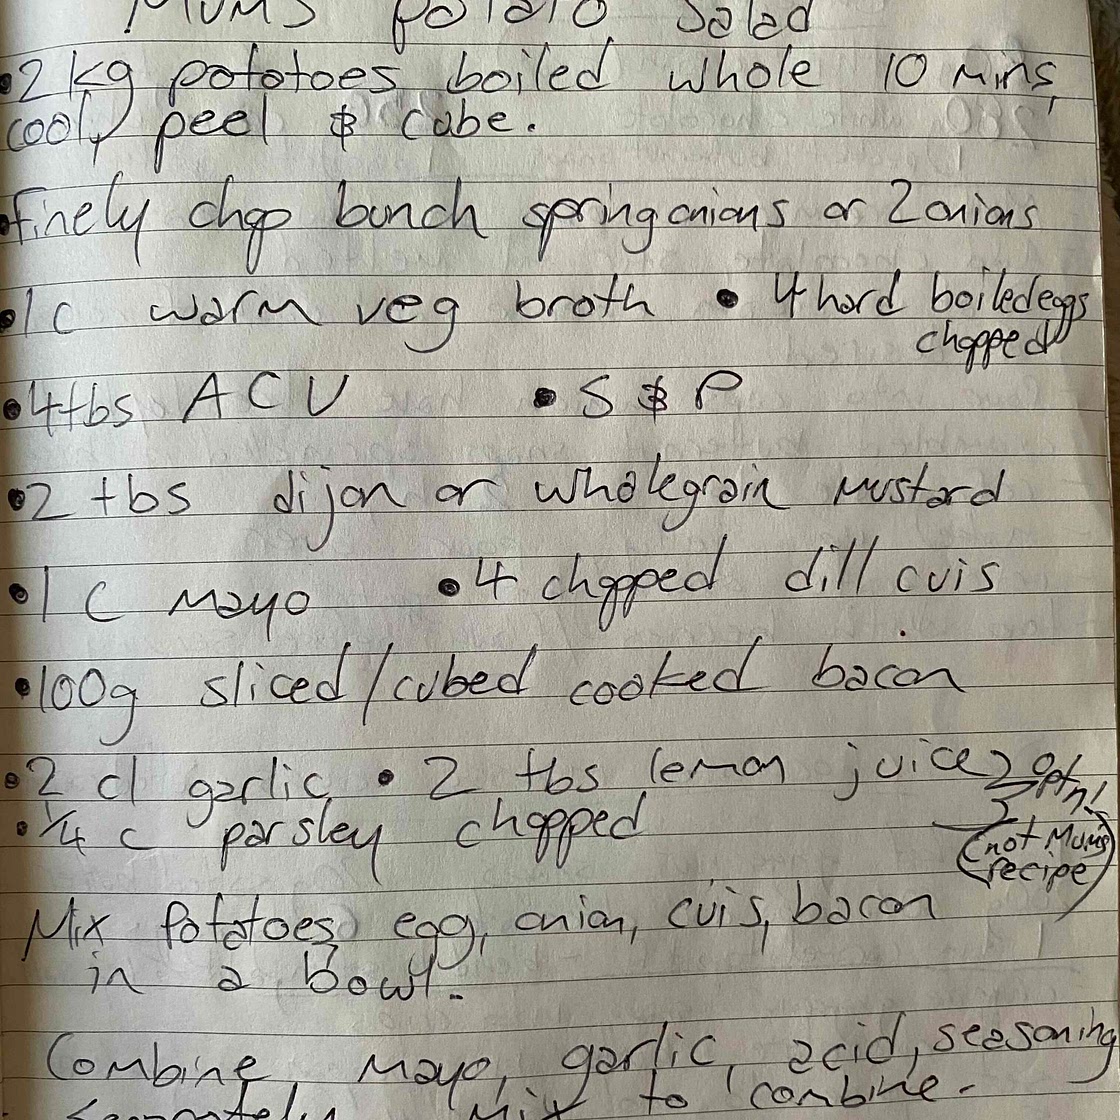 Mums potato salad
• 2 kg pototoes boiled whole 10 mins,
cool, peel & cube.
• finely chop bunch spring onions or 2 onions
• 1 c warm veg broth • 4 hard boiled eggs
chopped
• 4 tbs ACV • S & P
• 2 tbs dijon or wholegrain mustard
• 1 c mayo • 4 chopped dill cuis
• 100g sliced/cubed cooked bacon
• 2 cl garlic • 2 tbs lemon juice } optn'l
• 1/4 c parsley chopped
(not Mums
recipe)
Mix potatoes, egg, onion, cuis, bacon
in a bowl.
Combine mayo, garlic, acid, seasoning
separately. Mix to combine.